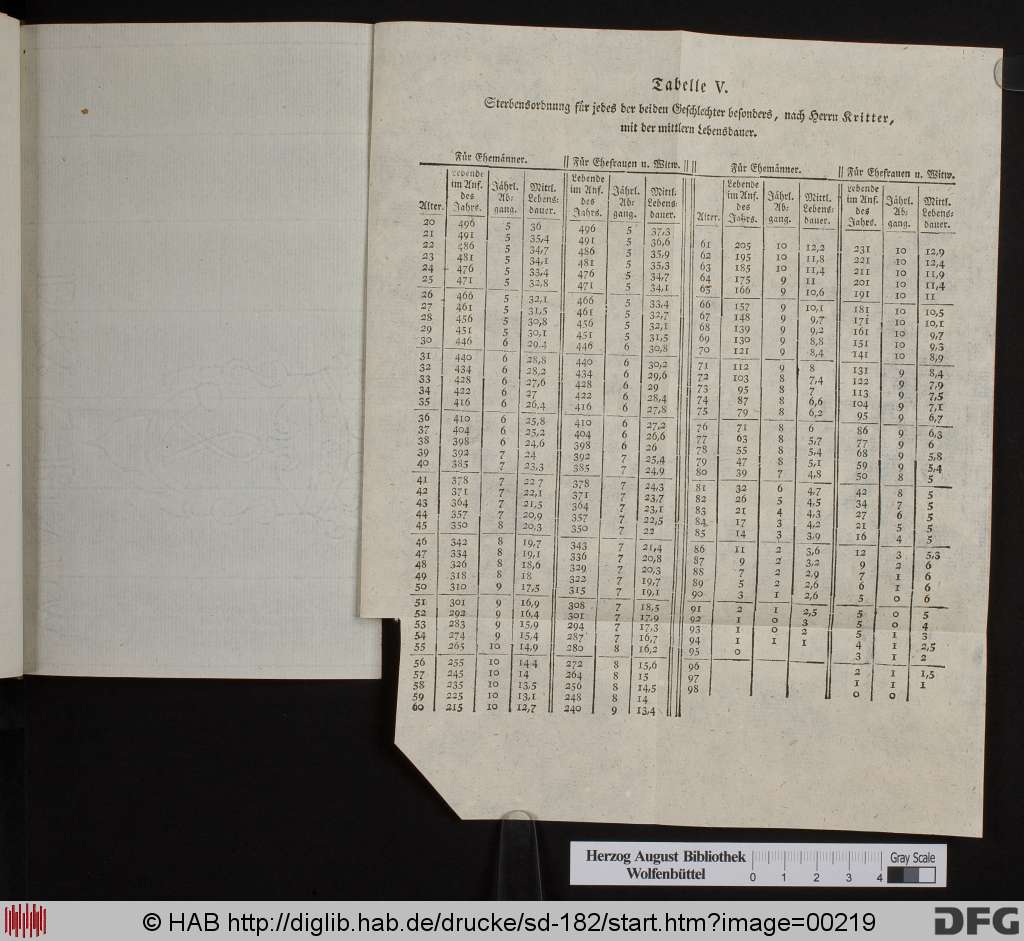 Tabelle V.
Sterbensordnung für jedes der beiden Geschlechter besonders, nach Herrn Kritter,
mit der mittlern Lebensdauer.
Für Ehemänner. Für Ehefrauen u. Witw. Für Ehemänner. Für Ehefrauen u. Witw.
Alter. Lebende im Anf. des Jahrs. Jährl. Ab: gang. Mittl. Lebens: dauer. Lebende im Anf. des Jahrs. Jährl. Ab: gang. Mittl. Lebens: dauer. Alter. Lebende im Anf. des Jahrs. Jährl. Ab: gang. Mittl. Lebens: dauer. Lebende im Anf. des Jahrs. Jährl. Ab: gang. Mittl. Lebens: dauer.
20 496 5 36 496 5 37,3
21 491 5 35,4 491 5 36,6 61 205 10 12,2 231 10 12,9
22 486 5 34,7 486 5 35,9 62 195 10 11,8 221 10 12,4
23 481 5 34,1 481 5 35,3 63 185 10 11,4 211 10 11,9
24 476 5 33,4 476 5 34,7 64 175 9 11 201 10 11,4
25 471 5 32,8 471 5 34,1 65 166 9 10,6 191 10 11
26 466 5 32,1 466 5 33,4 66 157 9 10,1 181 10 10,5
27 461 5 31,5 461 5 32,7 67 148 9 9,7 171 10 10,1
28 456 5 30,8 456 5 32,1 68 139 9 9,2 161 10 9,7
29 451 5 30,1 451 5 31,5 69 130 9 8,8 151 10 9,3
30 446 6 29,4 446 6 30,8 70 121 9 8,4 141 10 8,9
31 440 6 28,8 440 6 30,2 71 112 9 8 131 9 8,4
32 434 6 28,2 434 6 29,6 72 103 8 7,4 122 9 7,9
33 428 6 27,6 428 6 29 73 95 8 7 113 9 7,5
34 422 6 27 422 6 28,4 74 87 8 6,6 104 9 7,1
35 416 6 26,4 416 6 27,8 75 79 8 6,2 95 9 6,7
36 410 6 25,8 410 6 27,2 76 71 8 6 86 9 6,3
37 404 6 25,2 404 6 26,6 77 63 8 5,7 77 9 6
38 398 6 24,6 398 6 26 78 55 8 5,4 68 9 5,8
39 392 7 24 392 7 25,4 79 47 8 5,1 59 9 5,4
40 385 7 23,3 385 7 24,9 80 39 7 4,8 50 8 5
41 378 7 22 7 378 7 24,3 81 32 6 4,7 42 8 5
42 371 7 22,1 371 7 23,7 82 26 5 4,5 34 7 5
43 364 7 21,5 364 7 23,1 83 21 4 4,3 27 6 5
44 357 7 20,9 357 7 22,5 84 17 3 4,2 21 5 5
45 350 8 20,3 350 7 22 85 14 3 3,9 16 4 5
46 342 8 19,7 343 7 21,4 86 11 2 3,6 12 3 5,3
47 334 8 19,1 336 7 20,8 87 9 2 3,2 9 2 6
48 326 8 18,6 329 7 20,3 88 7 2 2,9 7 1 6
49 318 8 18 322 7 19,7 89 5 2 2,6 6 1 6
50 310 9 17,5 315 7 19,1 90 3 1 2,6 5 0 6
51 301 9 16,9 308 7 18,5 91 2 1 2,5 5 0 5
52 292 9 16,4 301 7 17,9 92 1 0 3 5 0 4
53 283 9 15,9 294 7 17,3 93 1 0 2 5 1 3
54 274 9 15,4 287 7 16,7 94 1 1 1 4 1 2,5
55 265 10 14,9 280 8 16,2 95 0 3 1 2
56 255 10 14 4 272 8 15,6 96 2 1 1,5
57 245 10 14 264 8 15 97 1 1 1
58 235 10 13,5 256 8 14,5 98 0 0
59 225 10 13,1 248 8 14
60 215 10 12,7 240 9 13,4
Herzog August Bibliothek
Wolfenbüttel
0 1 2 3 4
Gray Scale
© HAB http://diglib.hab.de/drucke/sd-182/start.htm?image=00219
DFG